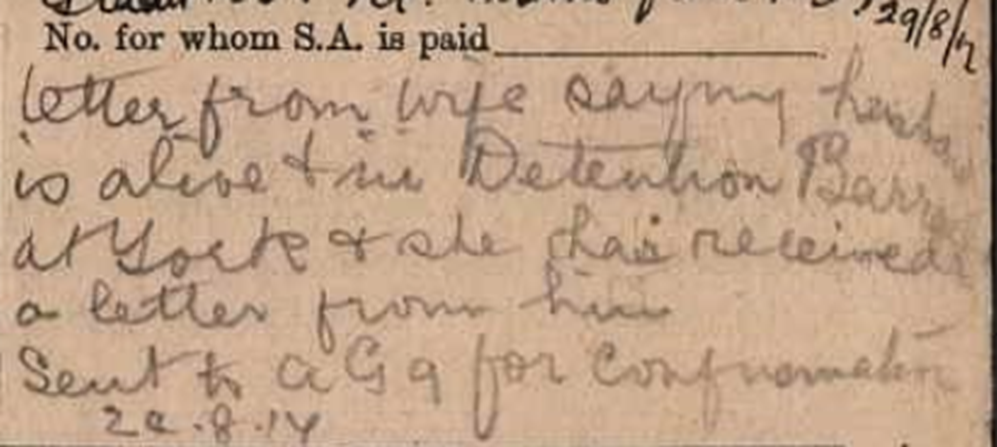 29/8/17
No. for whom S.A. is paid
letter from wife saying husband
is alive & in Detention Barr
at York & she has received
a letter from him
Sent to AG9 for confirmation
.8.17